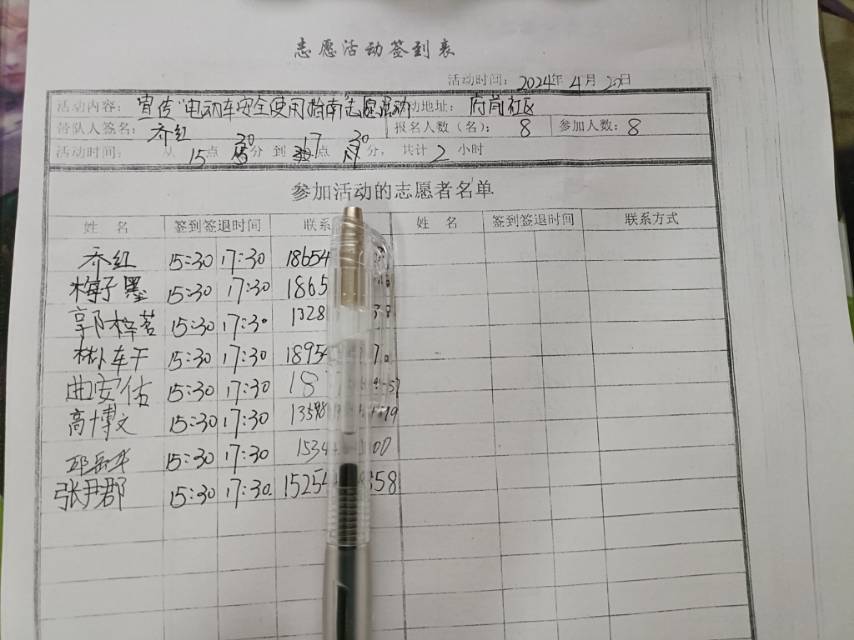 志愿活动签到表
活动时间: 2024年 4月 20日
活动内容: 宣传"电动车安全使用指南"志愿活动 动地址: 社区
带队人签名: 乔红 报名人数(名): 8 参加人数: 8
活动时间: 从 15点 30分 到 17点 30分, 共计 2 小时
参加活动的志愿者名单
姓 名 签到签退时间 联系 姓 名 签到签退时间 联系方式
乔红 15:30 17:30 18654
梅子墨 15:30 17:30 1865
郭梓茗 15:30 17:30 1328
15:30 17:30 1895
曲安佑 15:30 17:30 18
高博文 15:30 17:30 13598
15:30 17:30 1534
张尹郡 15:30 17:30 15254 358